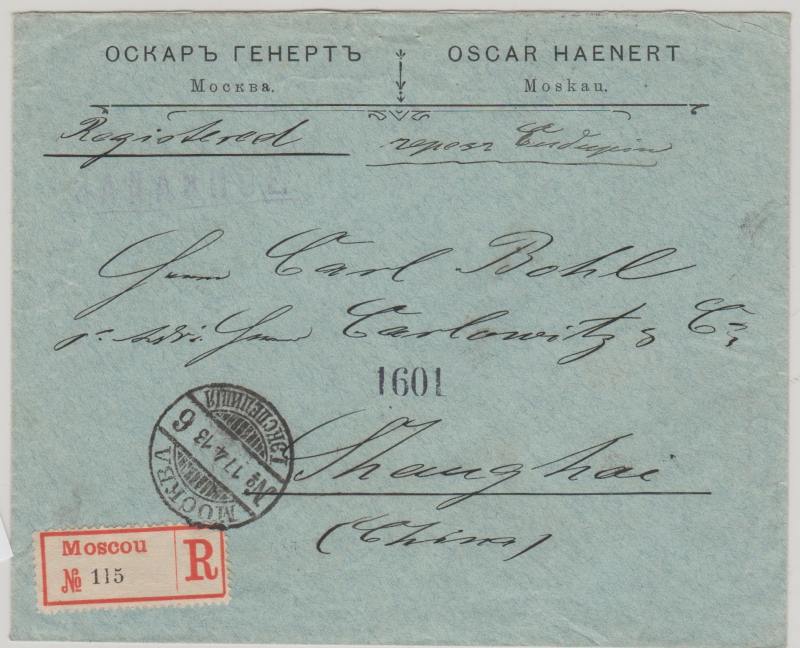 ОСКАРЪ ГЕНЕРТЪ OSCAR HAENERT
Москва. Moskau.
Registered черезъ Сибирію
ЗАКАЗНОЕ
Herrn Carl Bohl
p. Adr. Herrn Carlowitz & Co,
1601
Shanghai
(China)
МОСКВА
№ 17.4.13 6
1 ЭКСПЕДИЦІЯ
Moscou
№ 115
R